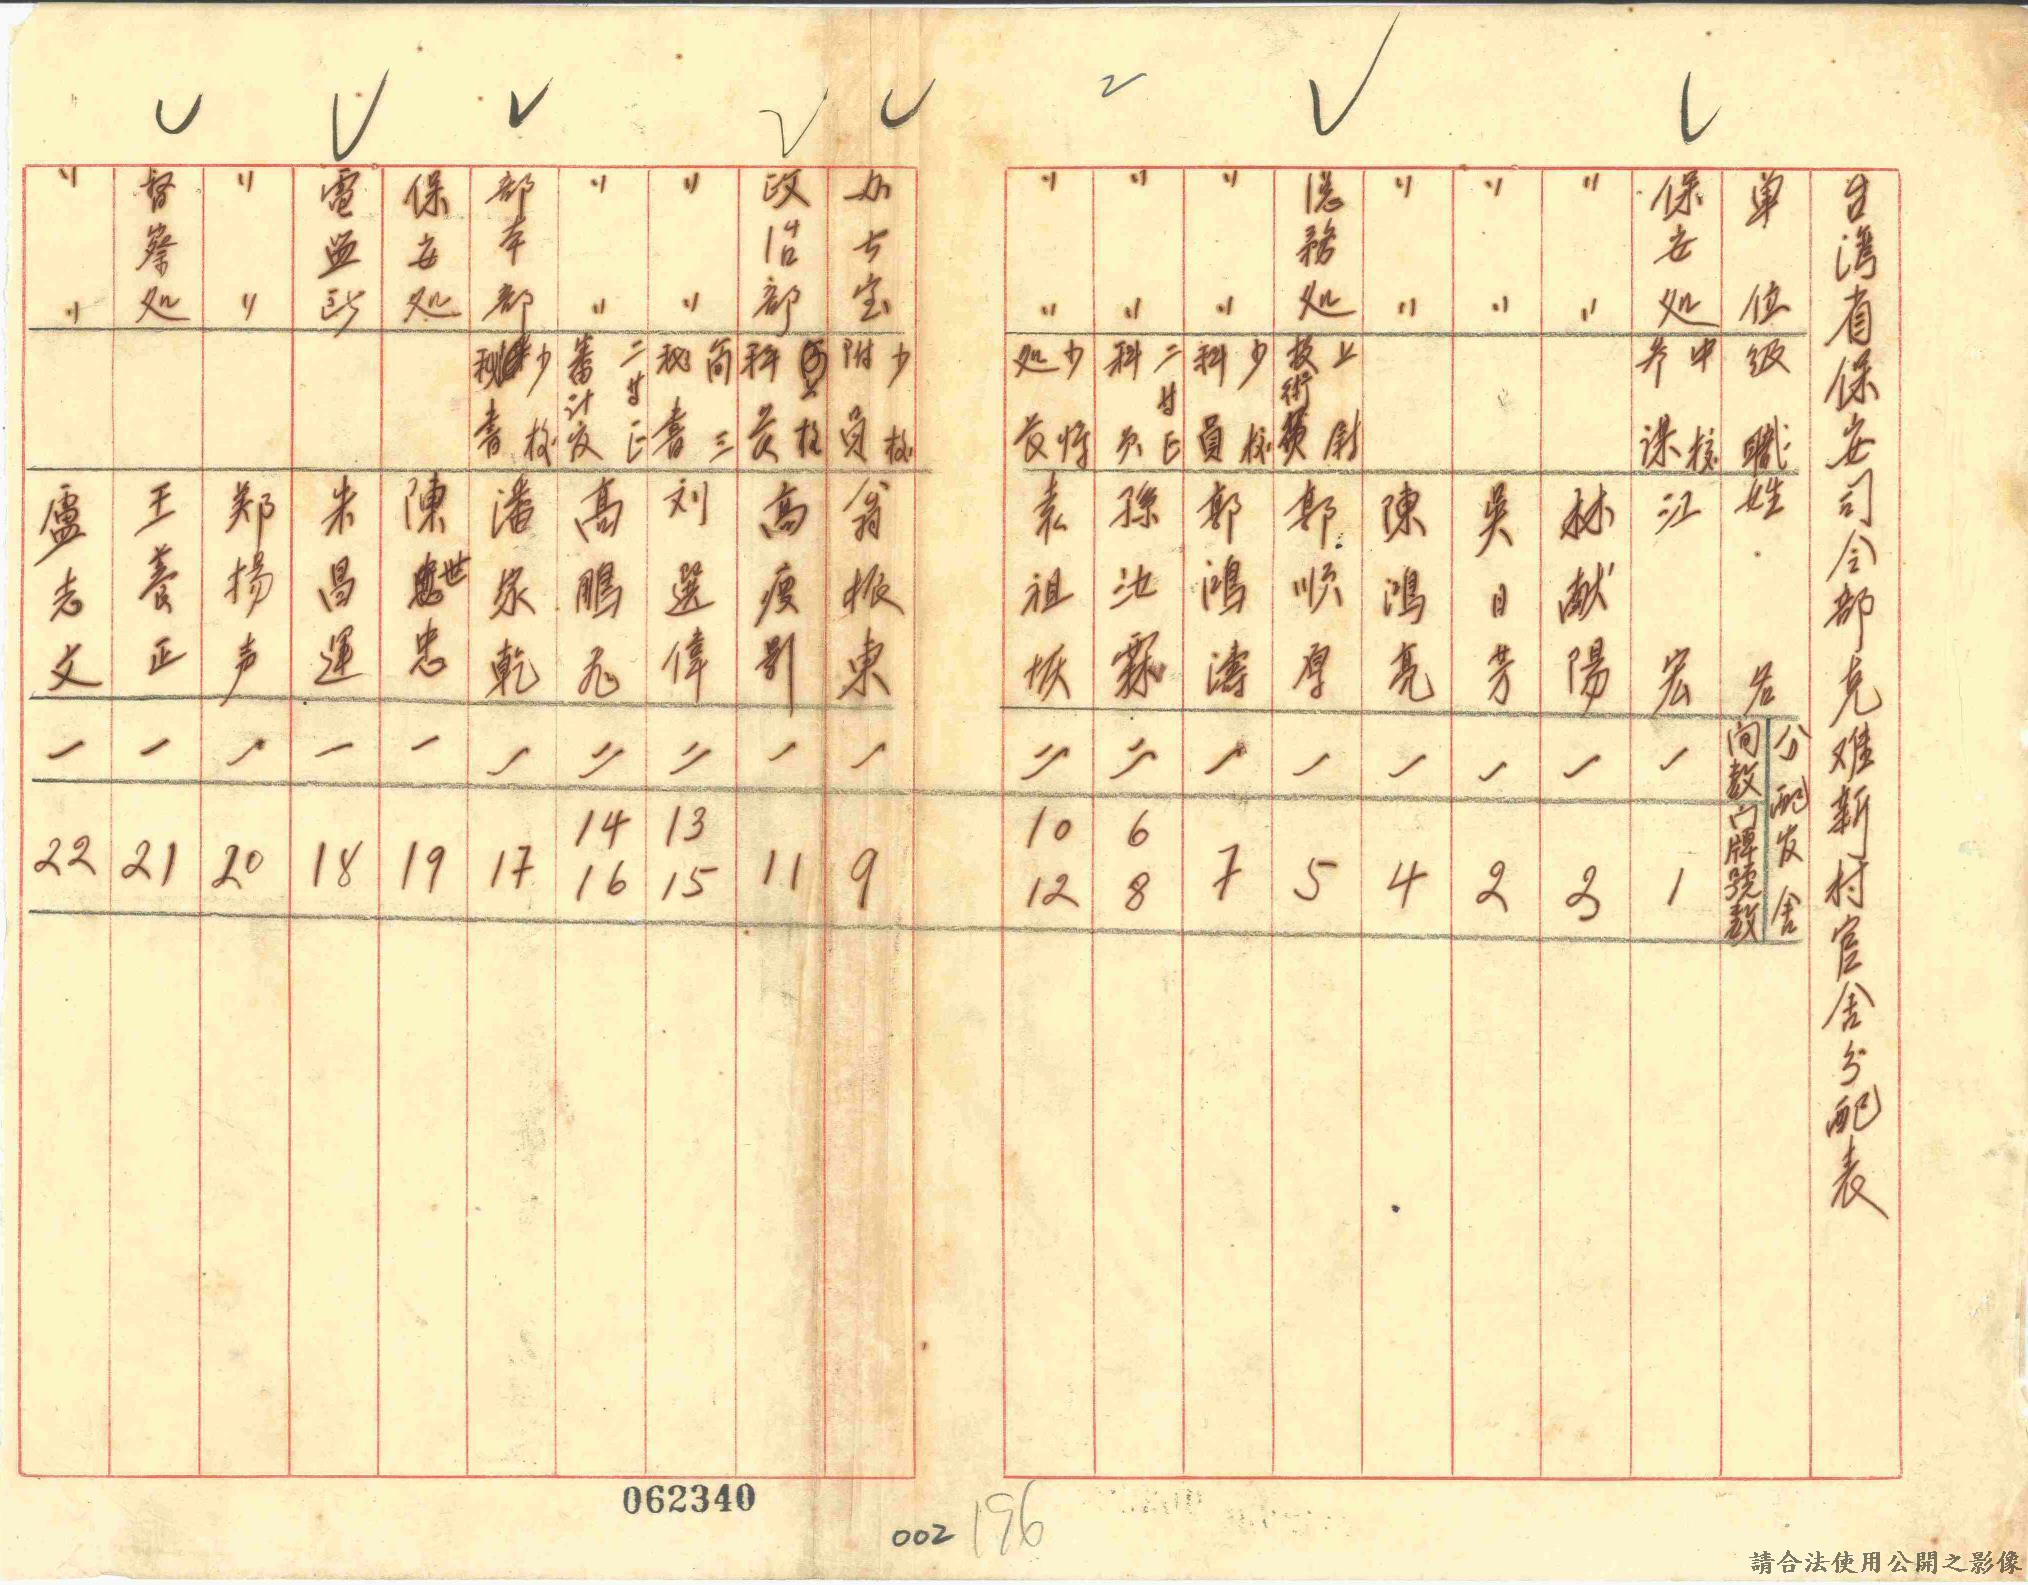 台灣省保安司令部克难新村官舍分配表
单位 级職 姓名 分配发舍 间数 门牌號数
保安处 中校 参谋 江宏 一 1
〃 〃 林献陽 一 3
〃 〃 吳日芳 一 2
〃 〃 陳鴻亮 一 4
总務处 上尉 技術 郭順厚 一 5
〃 〃 少校 科員 郭鴻濤 一 7
〃 〃 二廿正 科员 孫沈霖 二 6 8
〃 〃 少将 处长 袁祖恢 二 10 12
办公室 少校 附员 翁振東 一 9
政治部 上校 科长 高廋影 一 11
〃 〃 简三 秘書 刘選偉 二 13 15
〃 〃 二廿正 審計官 高鵬飛 二 14 16
部本部 少校 秘書 潘家乾 一 17
保安处 陳世忠 一 19
電監所 朱昌運 一 18
〃 〃 郑揚声 一 20
督察处 王養正 一 21
〃 〃 盧志文 一 22
062340
002
196
請合法使用公開之影像